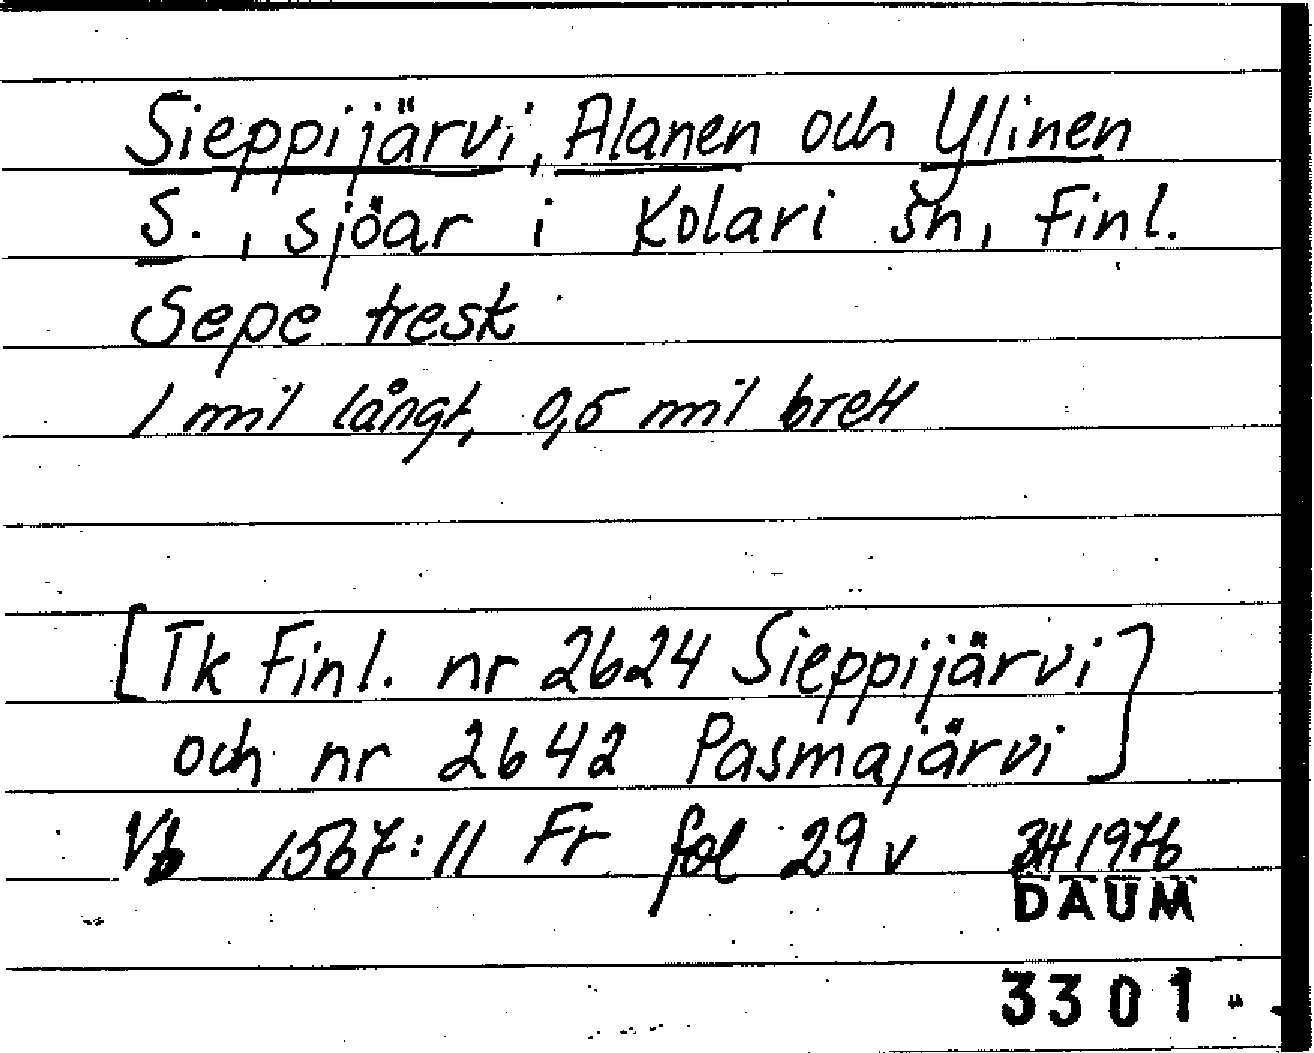 Sieppijärvi, Alanen och Ylinen
S., sjöar i Kolari sn, Finl.
Sepe tresk
1 mil långt, 0,5 mil brett
[Tk Finl. nr 2624 Sieppijärvi
och nr 2642 Pasmajärvi]
Vb 1567:11 Fr fol 29 v 3H 1976
DAUM
3301